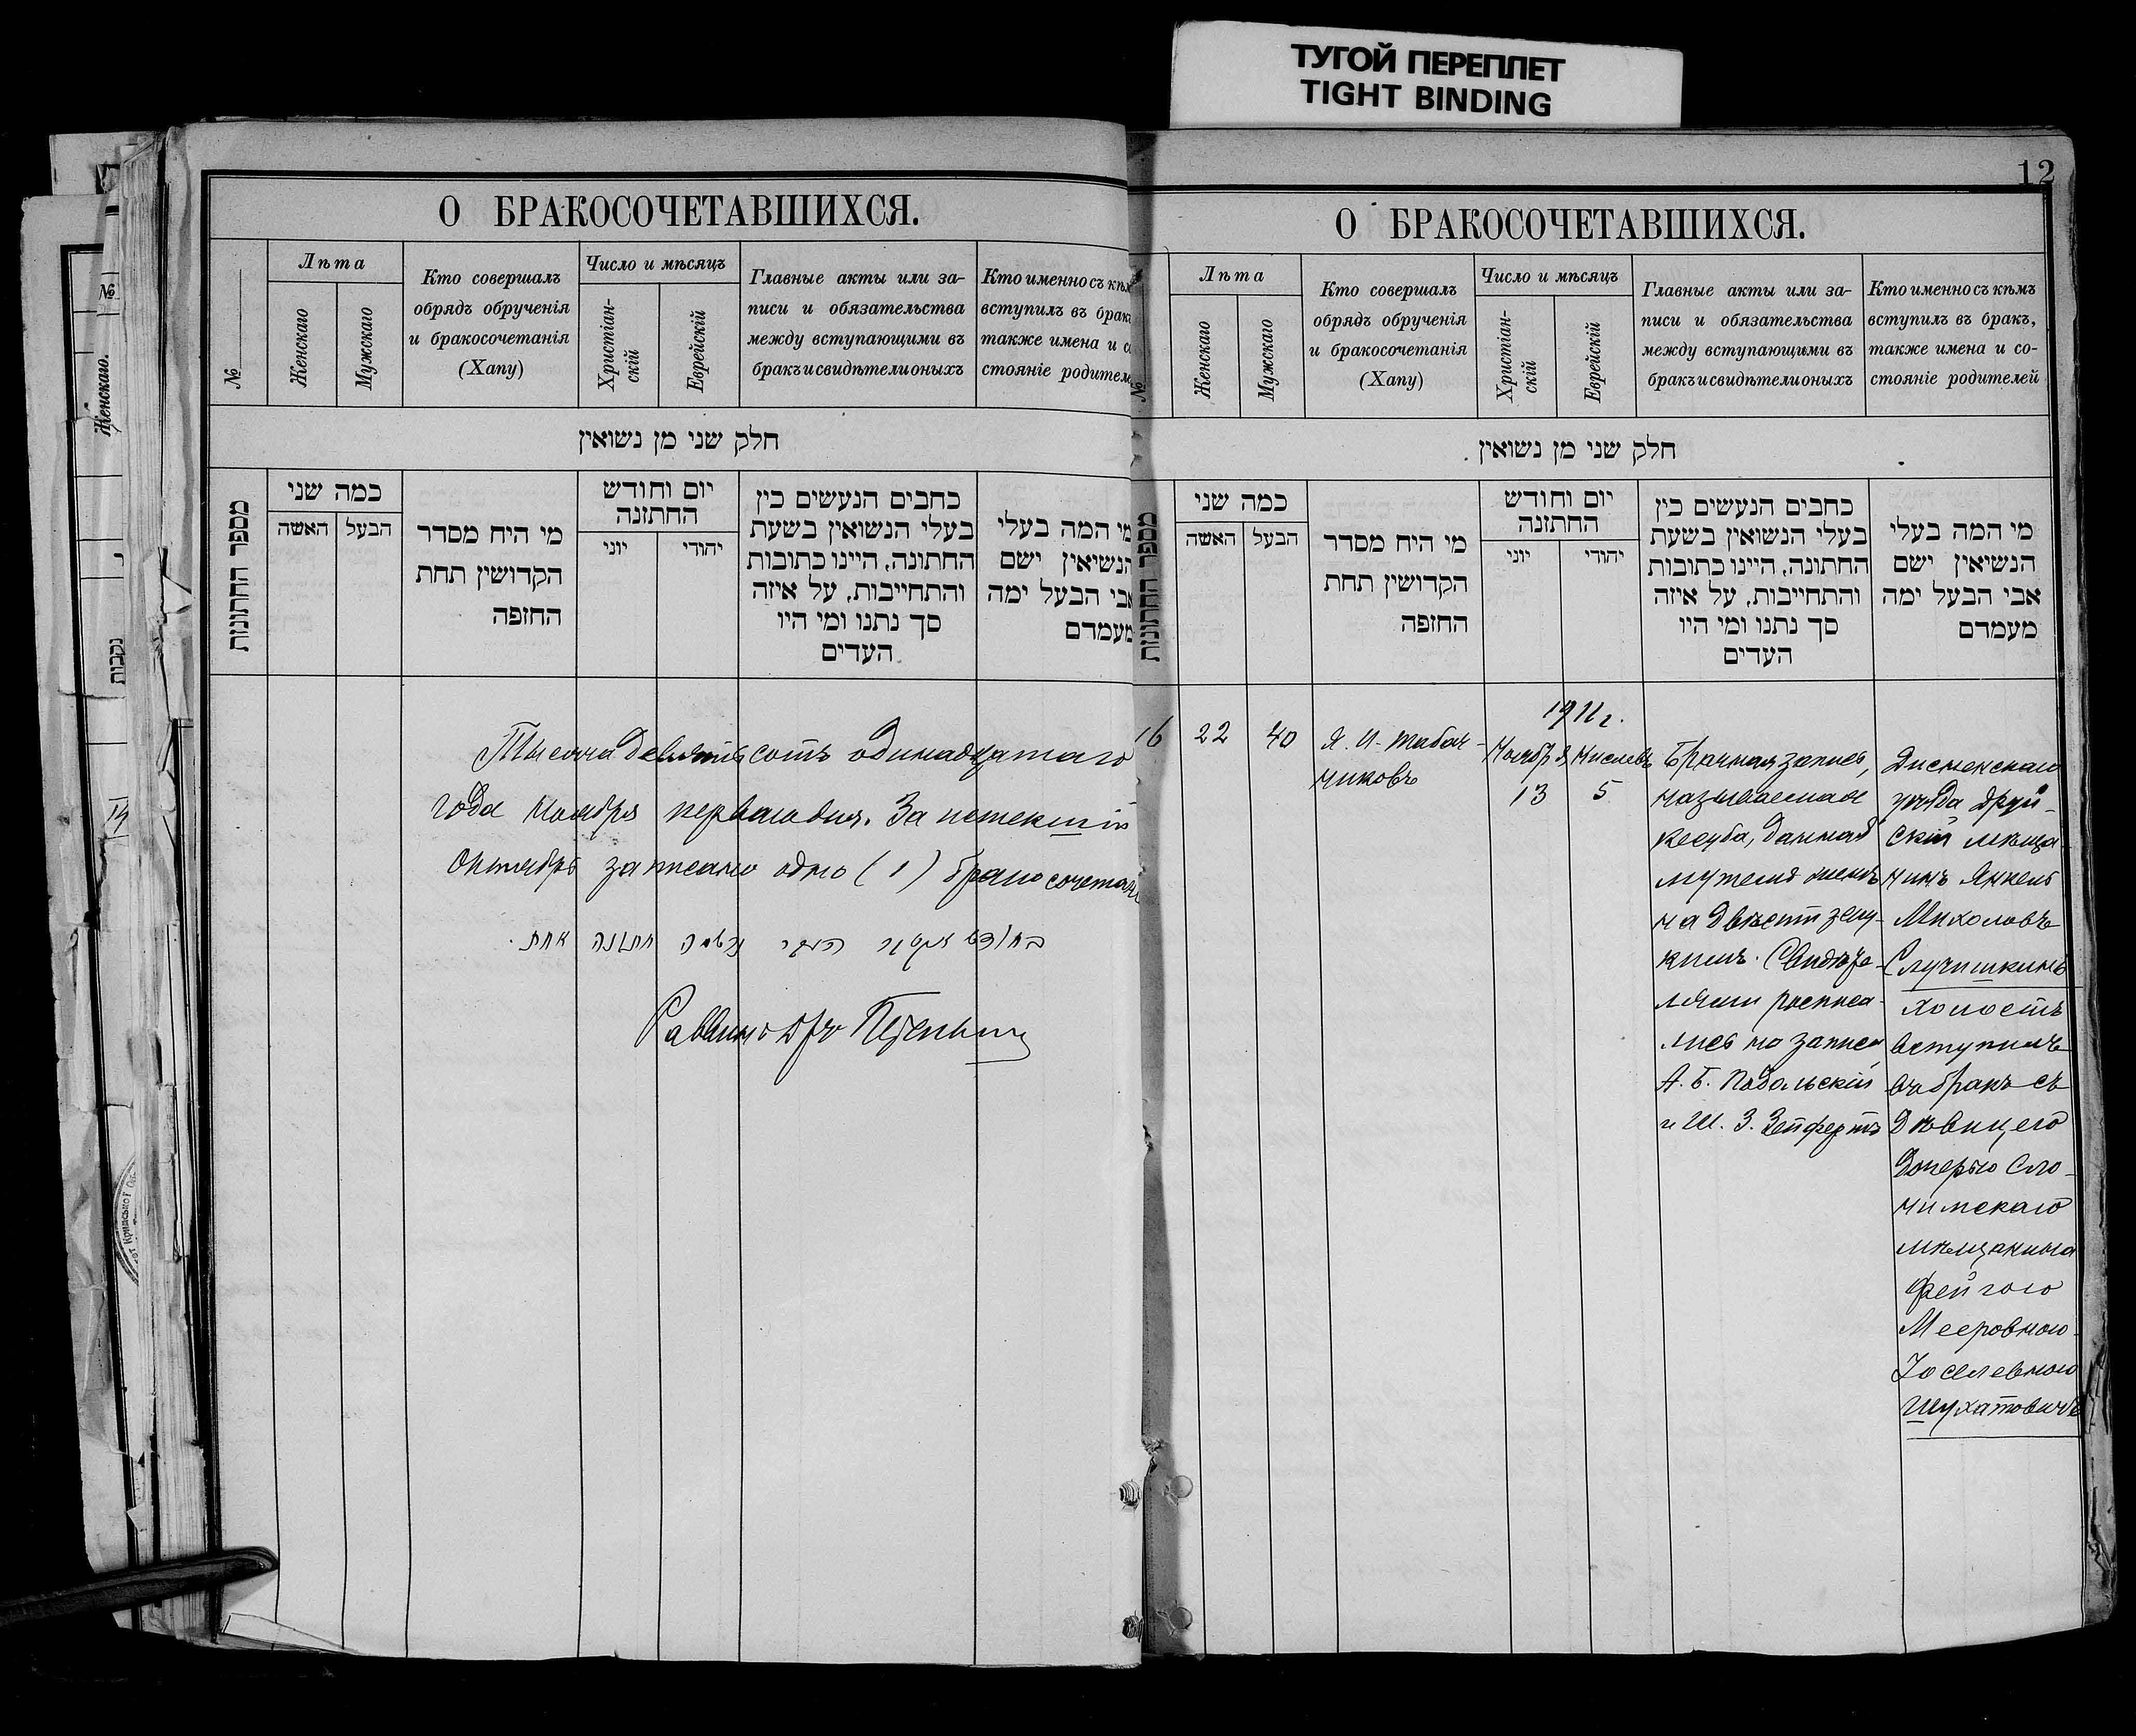 ТУГОЙ ПЕРЕПЛЕТ
TIGHT BINDING
№
Женскаго.
נקבות
О БРАКОСОЧЕТАВШИХСЯ.
№
Лѣта
Женскаго
Мужскаго
Кто совершалъ
обрядъ обрученія
и бракосочетанія
(Хапу)
Число и мѣсяцъ
Христіан-
скій
Еврейскій
Главные акты или за-
писи и обязательства
между вступающими въ
бракъ и свидѣтели оныхъ
Кто именно съ кѣм
вступилъ въ брак
также имена и с
стояніе родителе
חלק שני מן נשואין
מספר החתונות
כמה שני
האשה
הבעל
מי היח מסדר
הקדושין תחת
החזפה
יום וחודש
החתזנה
יוני
יהודי
כחבים הנעשים כין
בעלי הנשואין בשעת
החתונה, היינו כתובות
והתחייבות, על איזה
סך נתנו ומי היו
העדים
מי המה בעלי
הנשיאין ישם
אבי הבעל ימה
מעמדם
Тысяча девятьсотъ одинадцатаго
года Ноября перваго дня. За истекшій
Октябрь записано одно (1) бракосочетані
חתונה אחת
Раввинъ Д-ръ
12
О БРАКОСОЧЕТАВШИХСЯ.
№
Лѣта
Женскаго
Мужскаго
Кто совершалъ
обрядъ обрученія
и бракосочетанія
(Хапу)
Число и мѣсяцъ
Христіан-
скій
Еврейскій
Главные акты или за-
писи и обязательства
между вступающими въ
бракъ и свидѣтели оныхъ
Кто именно съ кѣмъ
вступилъ въ бракъ,
также имена и со-
стояніе родителей
חלק שני מן נשואין
מספר החתונות
כמה שני
האשה
הבעל
מי היח מסדר
הקדושין תחת
החזפה
יום וחודש
החתזנה
יוני
יהודי
כחבים הנעשים כין
בעלי הנשואין בשעת
החתונה, היינו כתובות
והתחייבות, על איזה
סך נתנו ומי היו
העדים
מי המה בעלי
הנשיאין ישם
אבי הבעל ימה
מעמדם
16
22
40
Я. И. Табач-
никовъ
1911 г.
Ноября
13
Кислевъ
5
Брачная запись,
называемая
кесуба, данная
мужемъ женѣ
на двѣсти злу-
кимъ. Свидѣте-
лями расписа-
лись на записи
А. Б. Подольскій
и Ш. З. Зейфертъ
Дисненскаго
уѣзда Друй-
скій мѣща-
нинъ Янкель
Михолевъ
Случишкинъ
холостъ
вступилъ
въ бракъ съ
Дѣвицею
Дочерью Сло-
нимскаго
мѣщанина
Фейгою
Мееровною-
Іоселевною
Шухатовичъ